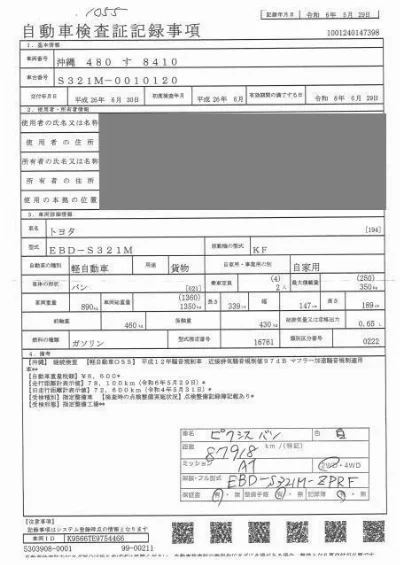 1055
記録年月日 令和 6年 5月 29日
自動車検査証記録事項
1001240147398
1. 基本情報
車両番号 沖縄 480 す 8410
車台番号 S321M-0010120
交付年月日 平成 26年 6月 30日 初度検査年月 平成 26年 6月 有効期間の満了する日 令和 6年 6月 29日
2. 使用者・所有者情報
使用者の氏名又は名称
使用者の住所
所有者の氏名又は名称
所有者の住所
使用の本拠の位置
3. 車両詳細情報
車名 トヨタ [194]
型式 EBD-S321M 原動機の型式 KF
自動車の種別 軽自動車 用途 貨物 自家用・事業用の別 自家用
車体の形状 バン [621] 乗車定員 (4) 2人 最大積載量 (250) 350kg
車両重量 890kg 車両総重量 (1360) 1350kg 長さ 339cm 幅 147cm 高さ 189cm
前軸重 460kg 後軸重 430kg 総排気量又は定格出力 0.65 L
燃料の種類 ガソリン 型式指定番号 16761 類別区分番号 0222
4. 備考
[沖縄] 継続検査 【軽自動車OSS】 平成12年騒音規制車 近接排気騒音規制値97dB マフラー加速騒音規制適用
車**
【自動車重量税額】¥6,600*
【走行距離計表示値】78,100km(令和6年5月29日)*
【旧走行距離計表示値】72,600km(令和4年5月31日)*
【受検種別】指定整備車 【検査時の点検整備実施状況】点検整備記録簿記載あり*
【受検形態】指定整備工場**
車名 ピクシスバン 色 白
距離 87918 km/(検証)
ミッション AT 2WD・4WD
類別・フル型式 EBD-S321M-ZPRF
保証書 有・無 整備手帳 有・無 記録簿 有・無
【注意事項】
記録事項はシステム登録時点の情報となります
車両ID K9566TE9754466
5303908-0001 99-00211